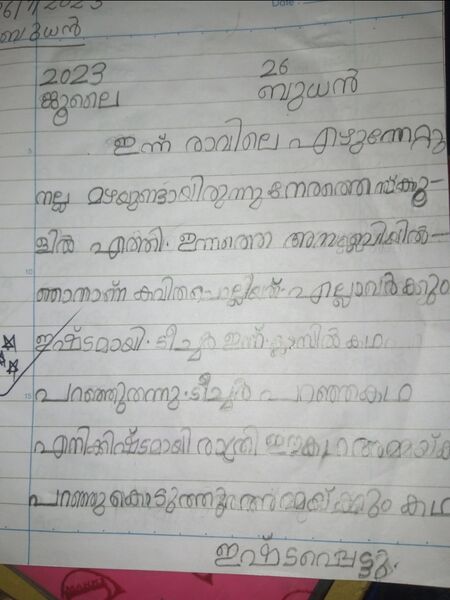 26/7/2023
ബുധൻ
Date :
2023 26
ജൂലൈ ബുധൻ
ഇന്ന് രാവിലെ എഴുന്നേറ്റു
നല്ല മഴയുണ്ടായിരുന്നു നേരത്തെ സ്ക്കൂ-
ളിൽ എത്തി. ഇന്നത്തെ അസംബ്ലിയിൽ-
ഞാനാണ് കവിത ചൊല്ലിയത്. എല്ലാവർക്കും
ഇഷ്ടമായി. ടീച്ചർ ഇന്ന് ക്ലാസിൽ കഥ
പറഞ്ഞുതന്നു. ടീച്ചർ പറഞ്ഞകഥ
എനിക്കിഷ്ടമായി രാത്രി ഈ കഥ അമ്മയ്ക്ക
പറഞ്ഞുകൊടുത്തു അമ്മയ്ക്കും കഥ
ഇഷ്ടപ്പെട്ടു.